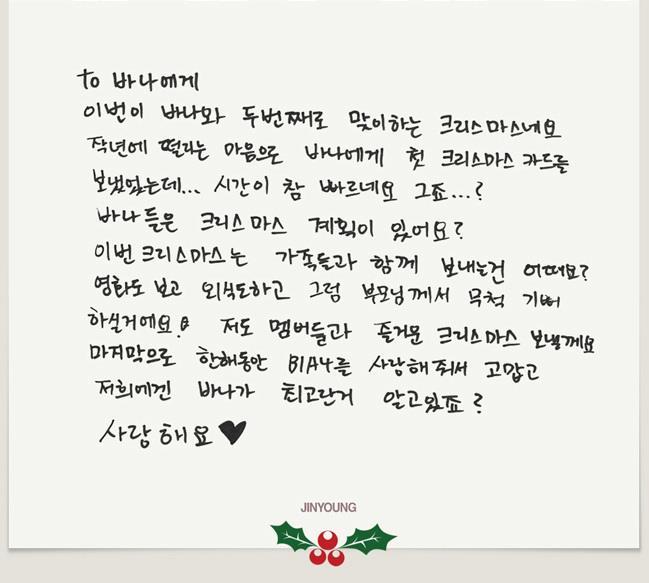 to 바나에게
이번이 바나와 두번째로 맞이하는 크리스마스네요
작년에 떨리는 마음으로 바나에게 첫 크리스마스 카드를
보냈었는데... 시간이 참 빠르네요 그죠...?
바나들은 크리스마스 계획이 있어요?
이번 크리스마스는 가족들과 함께 보내는건 어떠요?
영화도 보고 외식도하고 그럼 부모님께서 무척 기뻐
하실거에요! 저도 멤버들과 즐거운 크리스마스 보낼께요
마지막으로 한해동안 B1A4를 사랑해줘서 고맙고
저희에겐 바나가 최고란거 알고있죠?
사랑해요♥
JINYOUNG